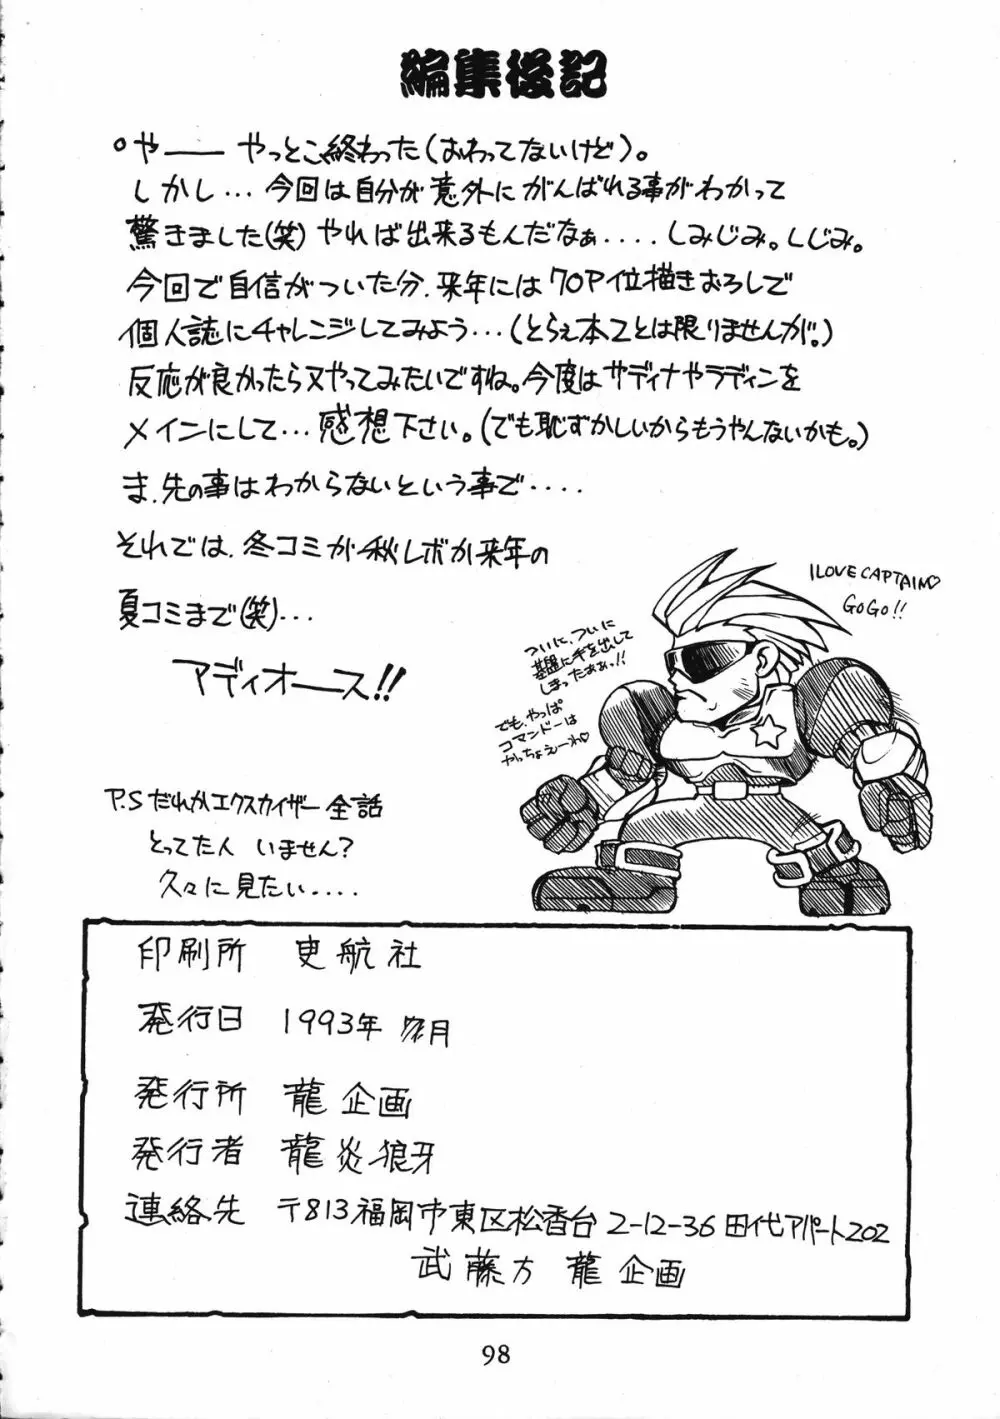 編集後記
°やー やっとこ終わった(おわってないけど)。
しかし...今回は自分が意外にがんばれる事がわかって
驚きました(笑)やれば出来るもんだなぁ....しみじみ。しじみ。
今回で自信がついた分.来年には70P位描きおろしで
個人誌にチャレンジしてみよう...(とらぇ本とは限りませんが。)
反応が良かったら又やってみたいですね。今度はサディナやラディンを
メインにして...感想下さい。(でも恥ずかしいからもうやんないかも。)
ま.先の事はわからないという事で....
それでは.冬コミか秋レボか来年の
夏コミまで(笑)...
アディオース!!
I LOVE CAPTAIN♡
GoGo!!
ついに、ついに
基盤に手を出して
しまったぁぁっ!!
でも、やっぱ
コマンドーは
かっちょえーわ♡
P.S だれかエクスカイザー全話
とってた人 いません?
久々に見たい....
印刷所 史航社
発行日 1993年 月
発行所 龍企画
発行者 龍炎狼牙
連絡先 〒813福岡市東区松香台2-12-36田代アパート202
武藤方 龍企画
98